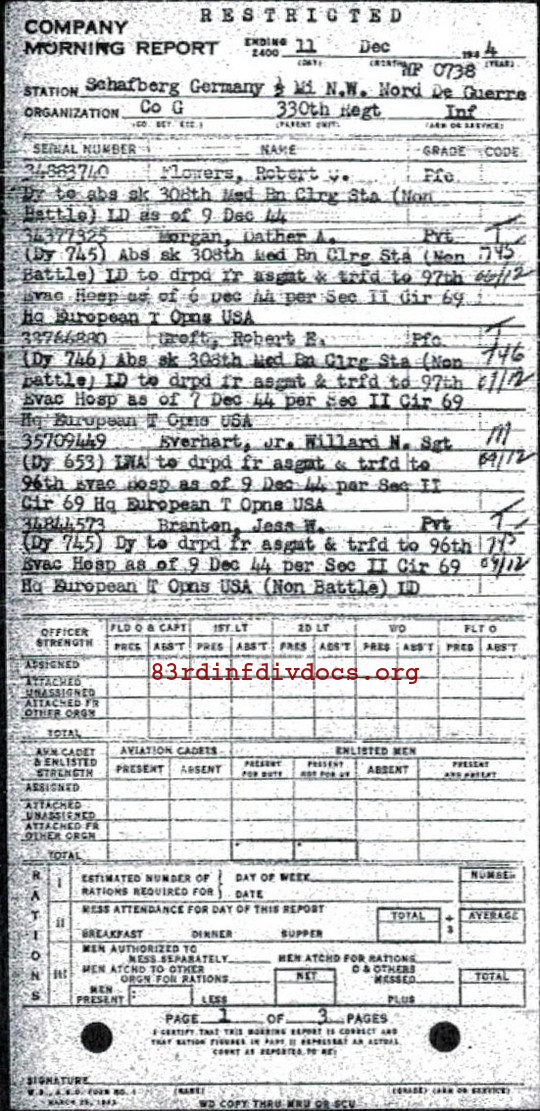 RESTRICTED
COMPANY
MORNING REPORT
ENDING 2400 11 Dec 194 4
(DAY) (MONTH) (YEAR)
MP 0738
STATION Schafberg Germany ½ Mi N.W. Nord De Guerre
ORGANIZATION Co G 330th Regt Inf
(CO. DET. ETC.) (PARENT UNIT) (ARM OR SERVICE)
SERIAL NUMBER NAME GRADE CODE
34883740 Flowers, Robert Pfc
Dy to abs sk 308th Med Bn Clrg Sta (Non
Battle) LD as of 9 Dec 44
34377325 Morgan, Dather A. Pvt T
(Dy 745) Abs sk 308th Med Bn Clrg Sta (Non 745
Battle) LD to drpd fr asgmt & trfd to 97th
Evac Hosp as of 6 Dec 44 per Sec II Cir 69
Hq European T Opns USA
33766880 Groft, Robert E. Pfc T
(Dy 746) Abs sk 308th Med Bn Clrg Sta (Non 746
Battle) LD to drpd fr asgmt & trfd to 97th 07/12
Evac Hosp as of 7 Dec 44 per Sec II Cir 69
Hq European T Opns USA
35709449 Everhart, Jr. Willard N. Sgt
(Dy 653) LWA to drpd fr asgmt & trfd to 09/12
96th Evac Hosp as of 9 Dec 44 per Sec II
Cir 69 Hq European T Opns USA
34844573 Branton, Jess W. Pvt T
(Dy 745) Dy to drpd fr asgmt & trfd to 96th 745
Evac Hosp as of 9 Dec 44 per Sec II Cir 69 09/12
Hq European T Opns USA (Non Battle) LD
OFFICER STRENGTH FLD O & CAPT 1ST LT 2D LT WO FLT O
PRES ABS'T PRES ABS'T PRES ABS'T PRES ABS'T PRES ABS'T
ASSIGNED
83rdinfdivdocs.org
ATTACHED UNASSIGNED
ATTACHED FR OTHER ORGN
TOTAL
AVN CADET & ENLISTED STRENGTH AVIATION CADETS ENLISTED MEN
PRESENT ABSENT PRESENT FOR DUTY PRESENT NOT FOR DY ABSENT PRESENT AND ABSENT
ASSIGNED
ATTACHED UNASSIGNED
ATTACHED FR OTHER ORGN
TOTAL
RATIONS
I ESTIMATED NUMBER OF RATIONS REQUIRED FOR DAY OF WEEK DATE NUMBER
II MESS ATTENDANCE FOR DAY OF THIS REPORT TOTAL ÷ 3 AVERAGE
BREAKFAST DINNER SUPPER
III MEN AUTHORIZED TO MESS SEPARATELY MEN ATCHD FOR RATIONS
MEN ATCHD TO OTHER ORGN FOR RATIONS NET O & OTHERS MESSED TOTAL
MEN PRESENT LESS PLUS
PAGE 1 OF 3 PAGES
I CERTIFY THAT THIS MORNING REPORT IS CORRECT AND
THAT RATION FIGURES IN PART II REPRESENT AN ACTUAL
COUNT AS REPORTED TO ME:
SIGNATURE
(NAME) (GRADE) (ARM OR SERVICE)
W.D., A.G.O. FORM NO. 1
MARCH 25, 1943
WD COPY THRU MRU OR SCU